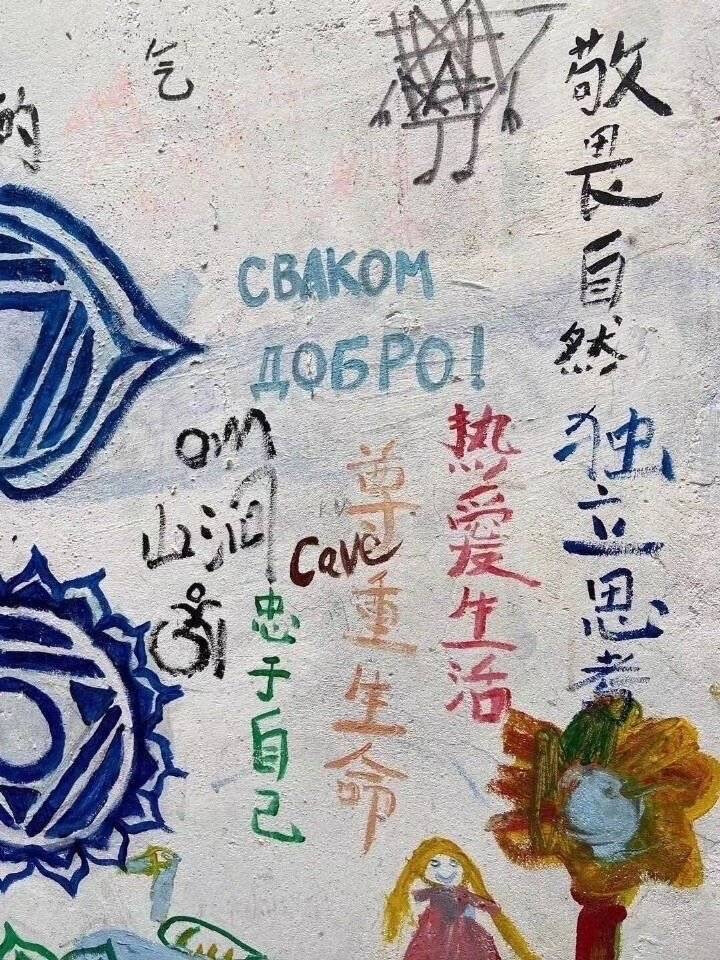 气
的
敬畏自然
独立思考
СВАКОМ
ДОБРО!
热愛生活
尊重生命
om
山洞
Cave
忠于自己